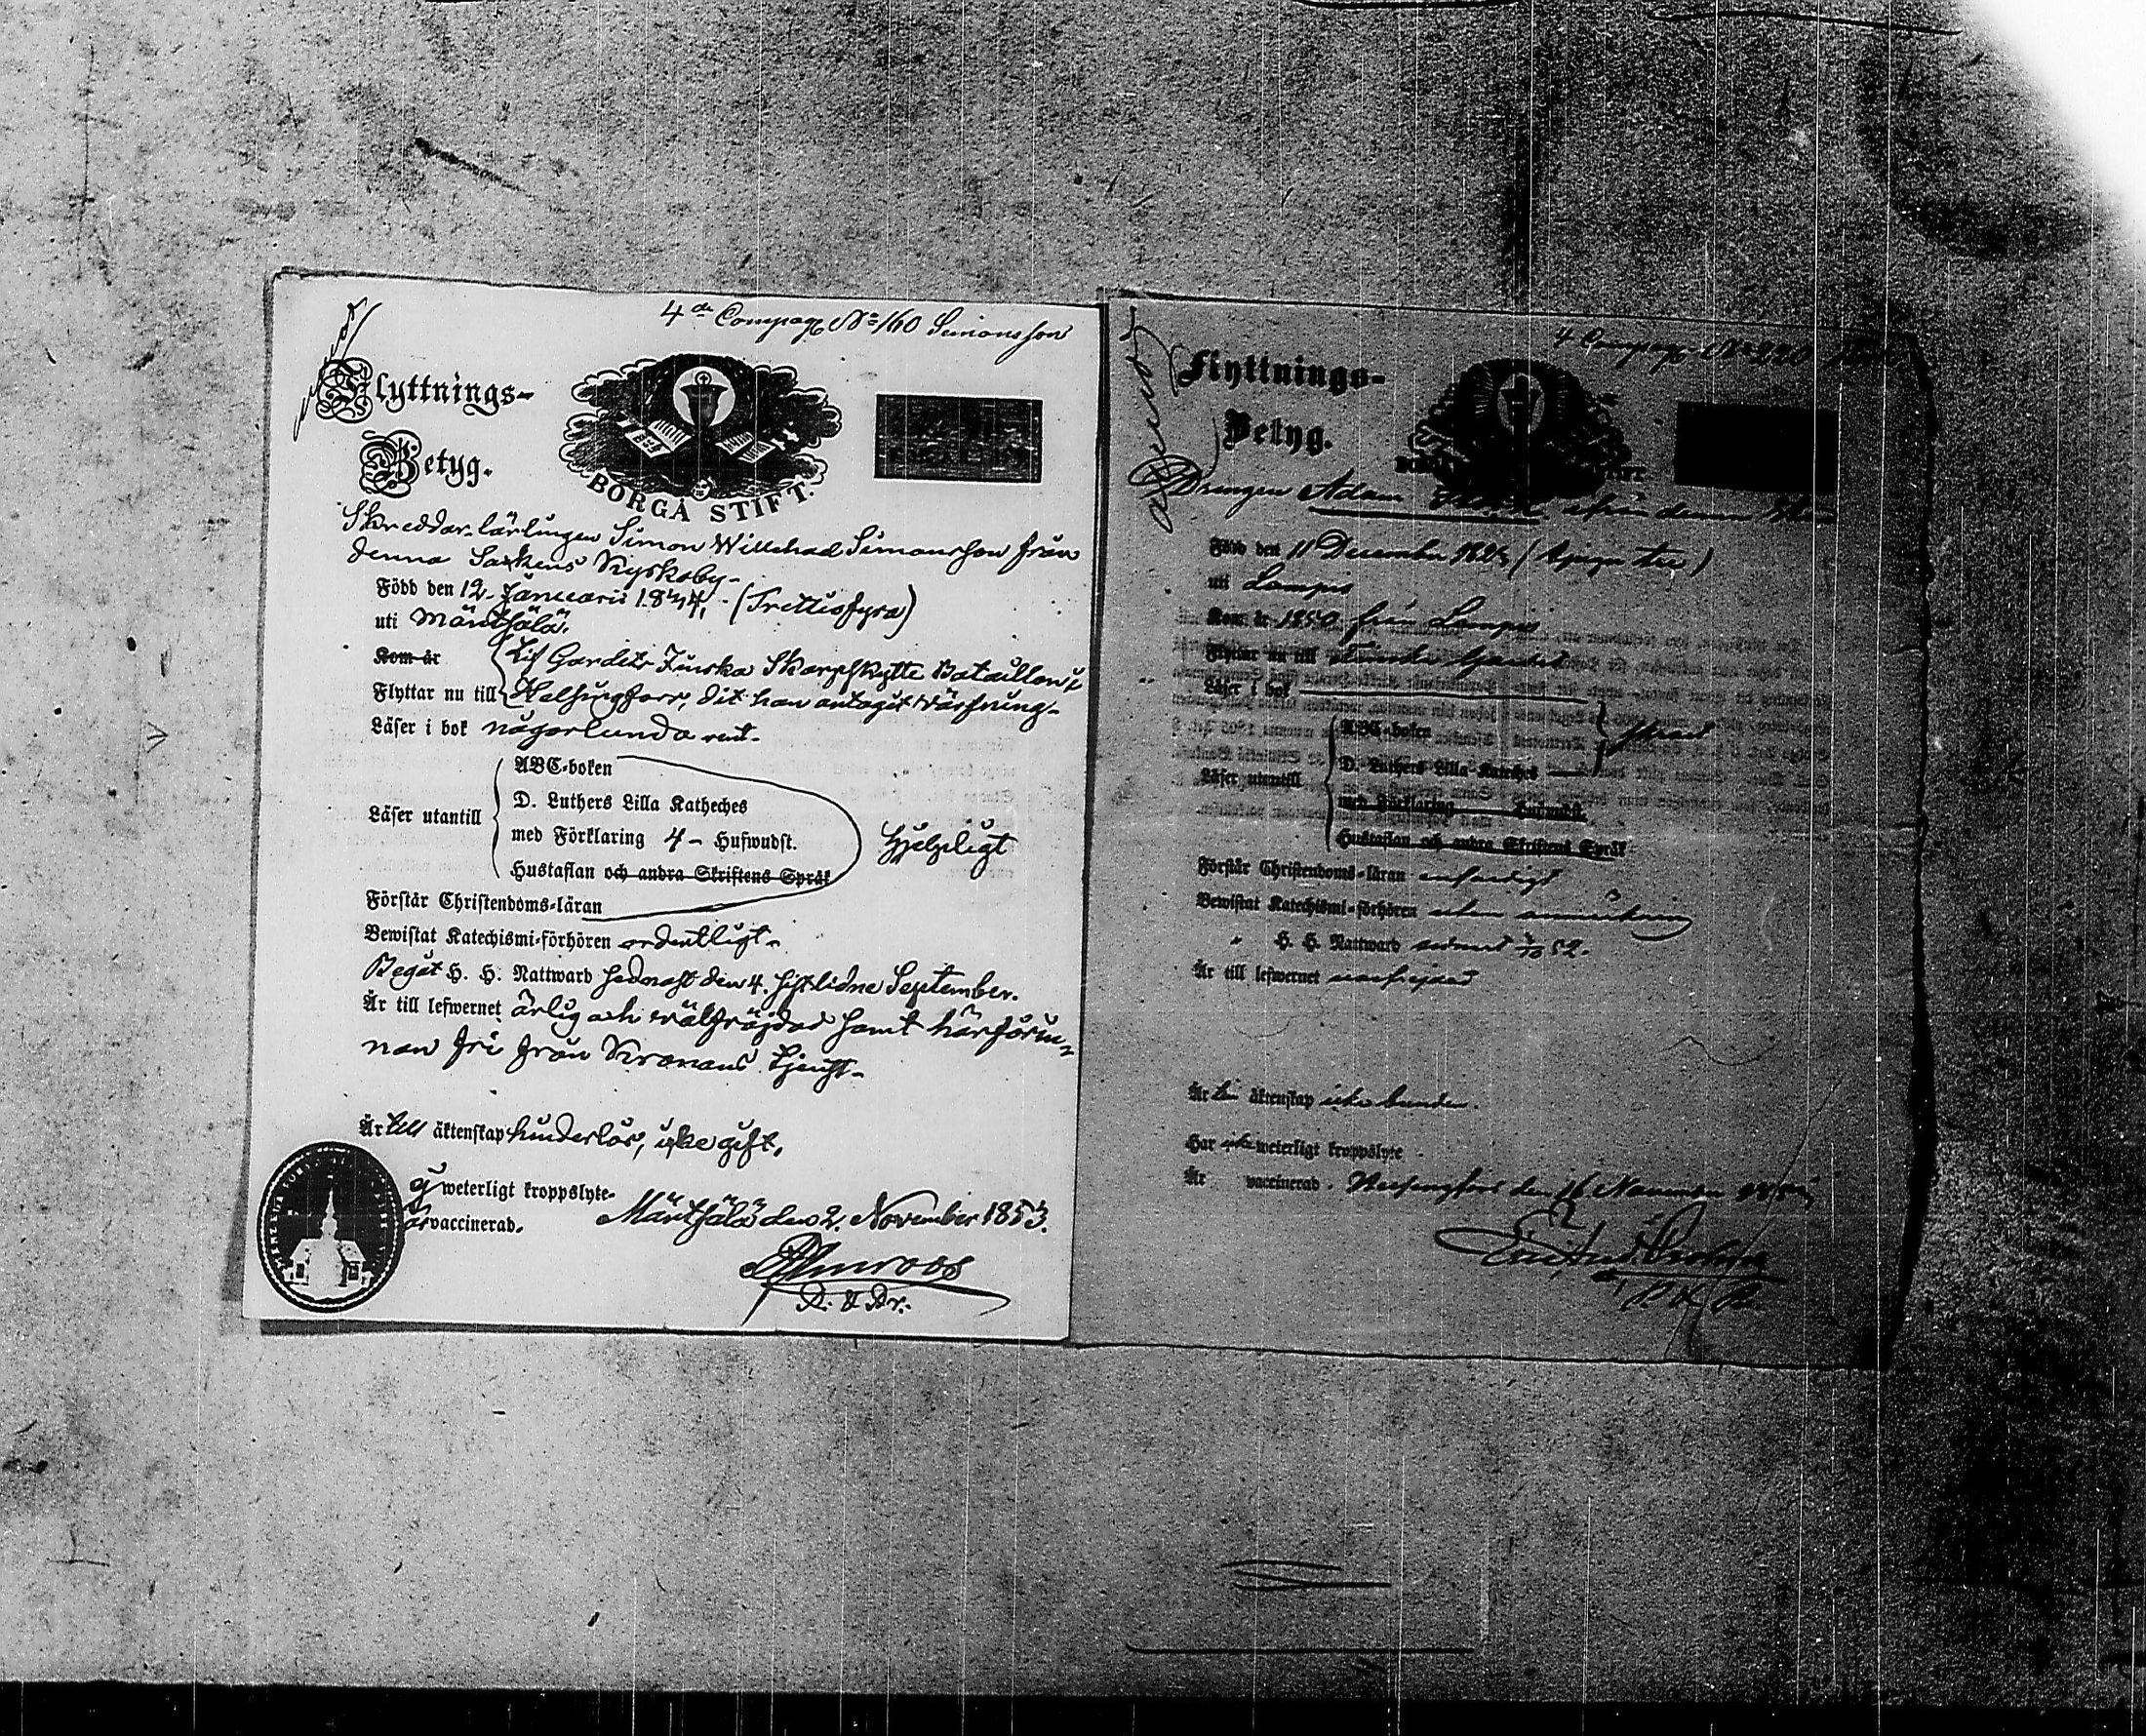 4de Compag. No 160 Simonsson
Flyttnings-
Betyg.
BORGÅ STIFT.
Skreddar-lärlingen Simon Willehad Simonsson från
denna Sockens Nyskoby-
Född den 12. Januarii 1834. (Trettiofyra)
uti Mäntsälä.
Kom år
Lif Gardets Finska Skarpskytte Bataillon i
Flyttar nu till Helsingfors, dit han antagit värfning-
Läser i bok någorlunda rent-
ABC-boken
D. Luthers Lilla Katheches
Läser utantill
med Förklaring 4 - Hufwudst.
Hjelpligt
Hustaflan och andra Skriftens Språk
Förstår Christendoms-läran
Bewistat Katechismi-förhören ordentligt-
Begått H. H. Nattward sednast den 4. sistlidne September.
Är till lefwernet ärlig och välfräjdad samt härförin-
nan fri från Kronans tjenst-
Är till äktenskap hinderlös, icke gift.
Ej weterligt kroppslyte-
Är vaccinerad.
Mäntsälä den 2. November 1853.
4 Compag. No 220
Flyttnings-
Betyg.
Drengen Adam från denna
Född den 11 December 1823 (tjugu tre)
uti Lampis
Kom år 1850 från Lampis
Flyttar nu till Finska Gardet
Läser i bok
ABC-boken
D. Luthers Lilla Kateches
Läser utantill
med Förklaring Hufwudst.
Hustaflan och andra Skriftens Språk
Förstår Christendoms-läran enfaldigt
Bewistat Katechismi-förhören utan anmärkning
" H. H. Nattward senast 52.
Är till lefwernet wälfrejdad
Är till äktenskap icke bunden.
Har icke weterligt kroppslyte
Är vaccinerad. Helsingfors den 16 November